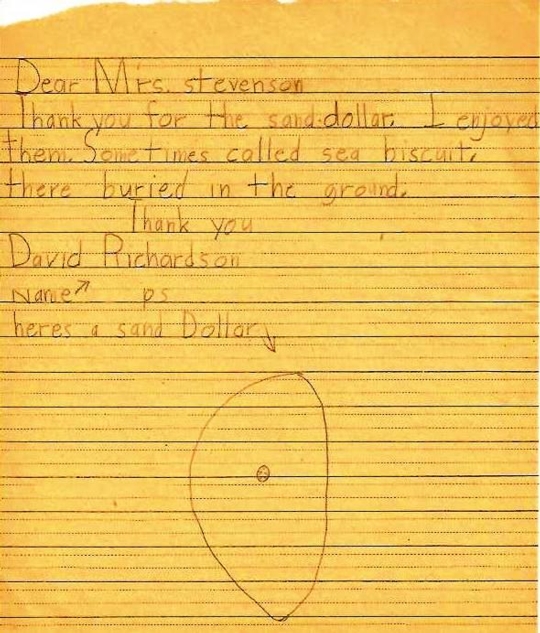 Dear Mrs. stevenson
Thank you for the sand.dollar. I enjoyed
them. Sometimes called sea biscuit.
there buried in the ground.
Thank you
David Richardson
Name↗ ps
heres a sand Dollar↘